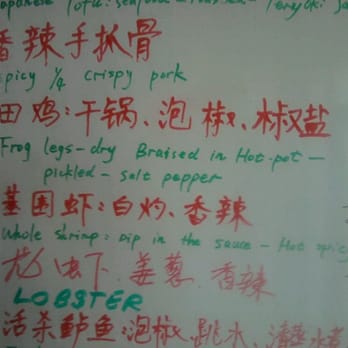 Japanese Tofu: seafood - - Teriyaki
香辣手扒骨
spicy 1/4 crispy pork
田鸡:干锅、泡椒、椒盐
Frog legs - dry Braised in Hot-pot -
pickled - salt pepper
基围虾:白灼、香辣
Whole shrimp: Dip in the sauce - Hot spic
龙虾.姜葱.香辣
LOBSTER
活杀鲈鱼:泡椒、跳水、清蒸、水煮